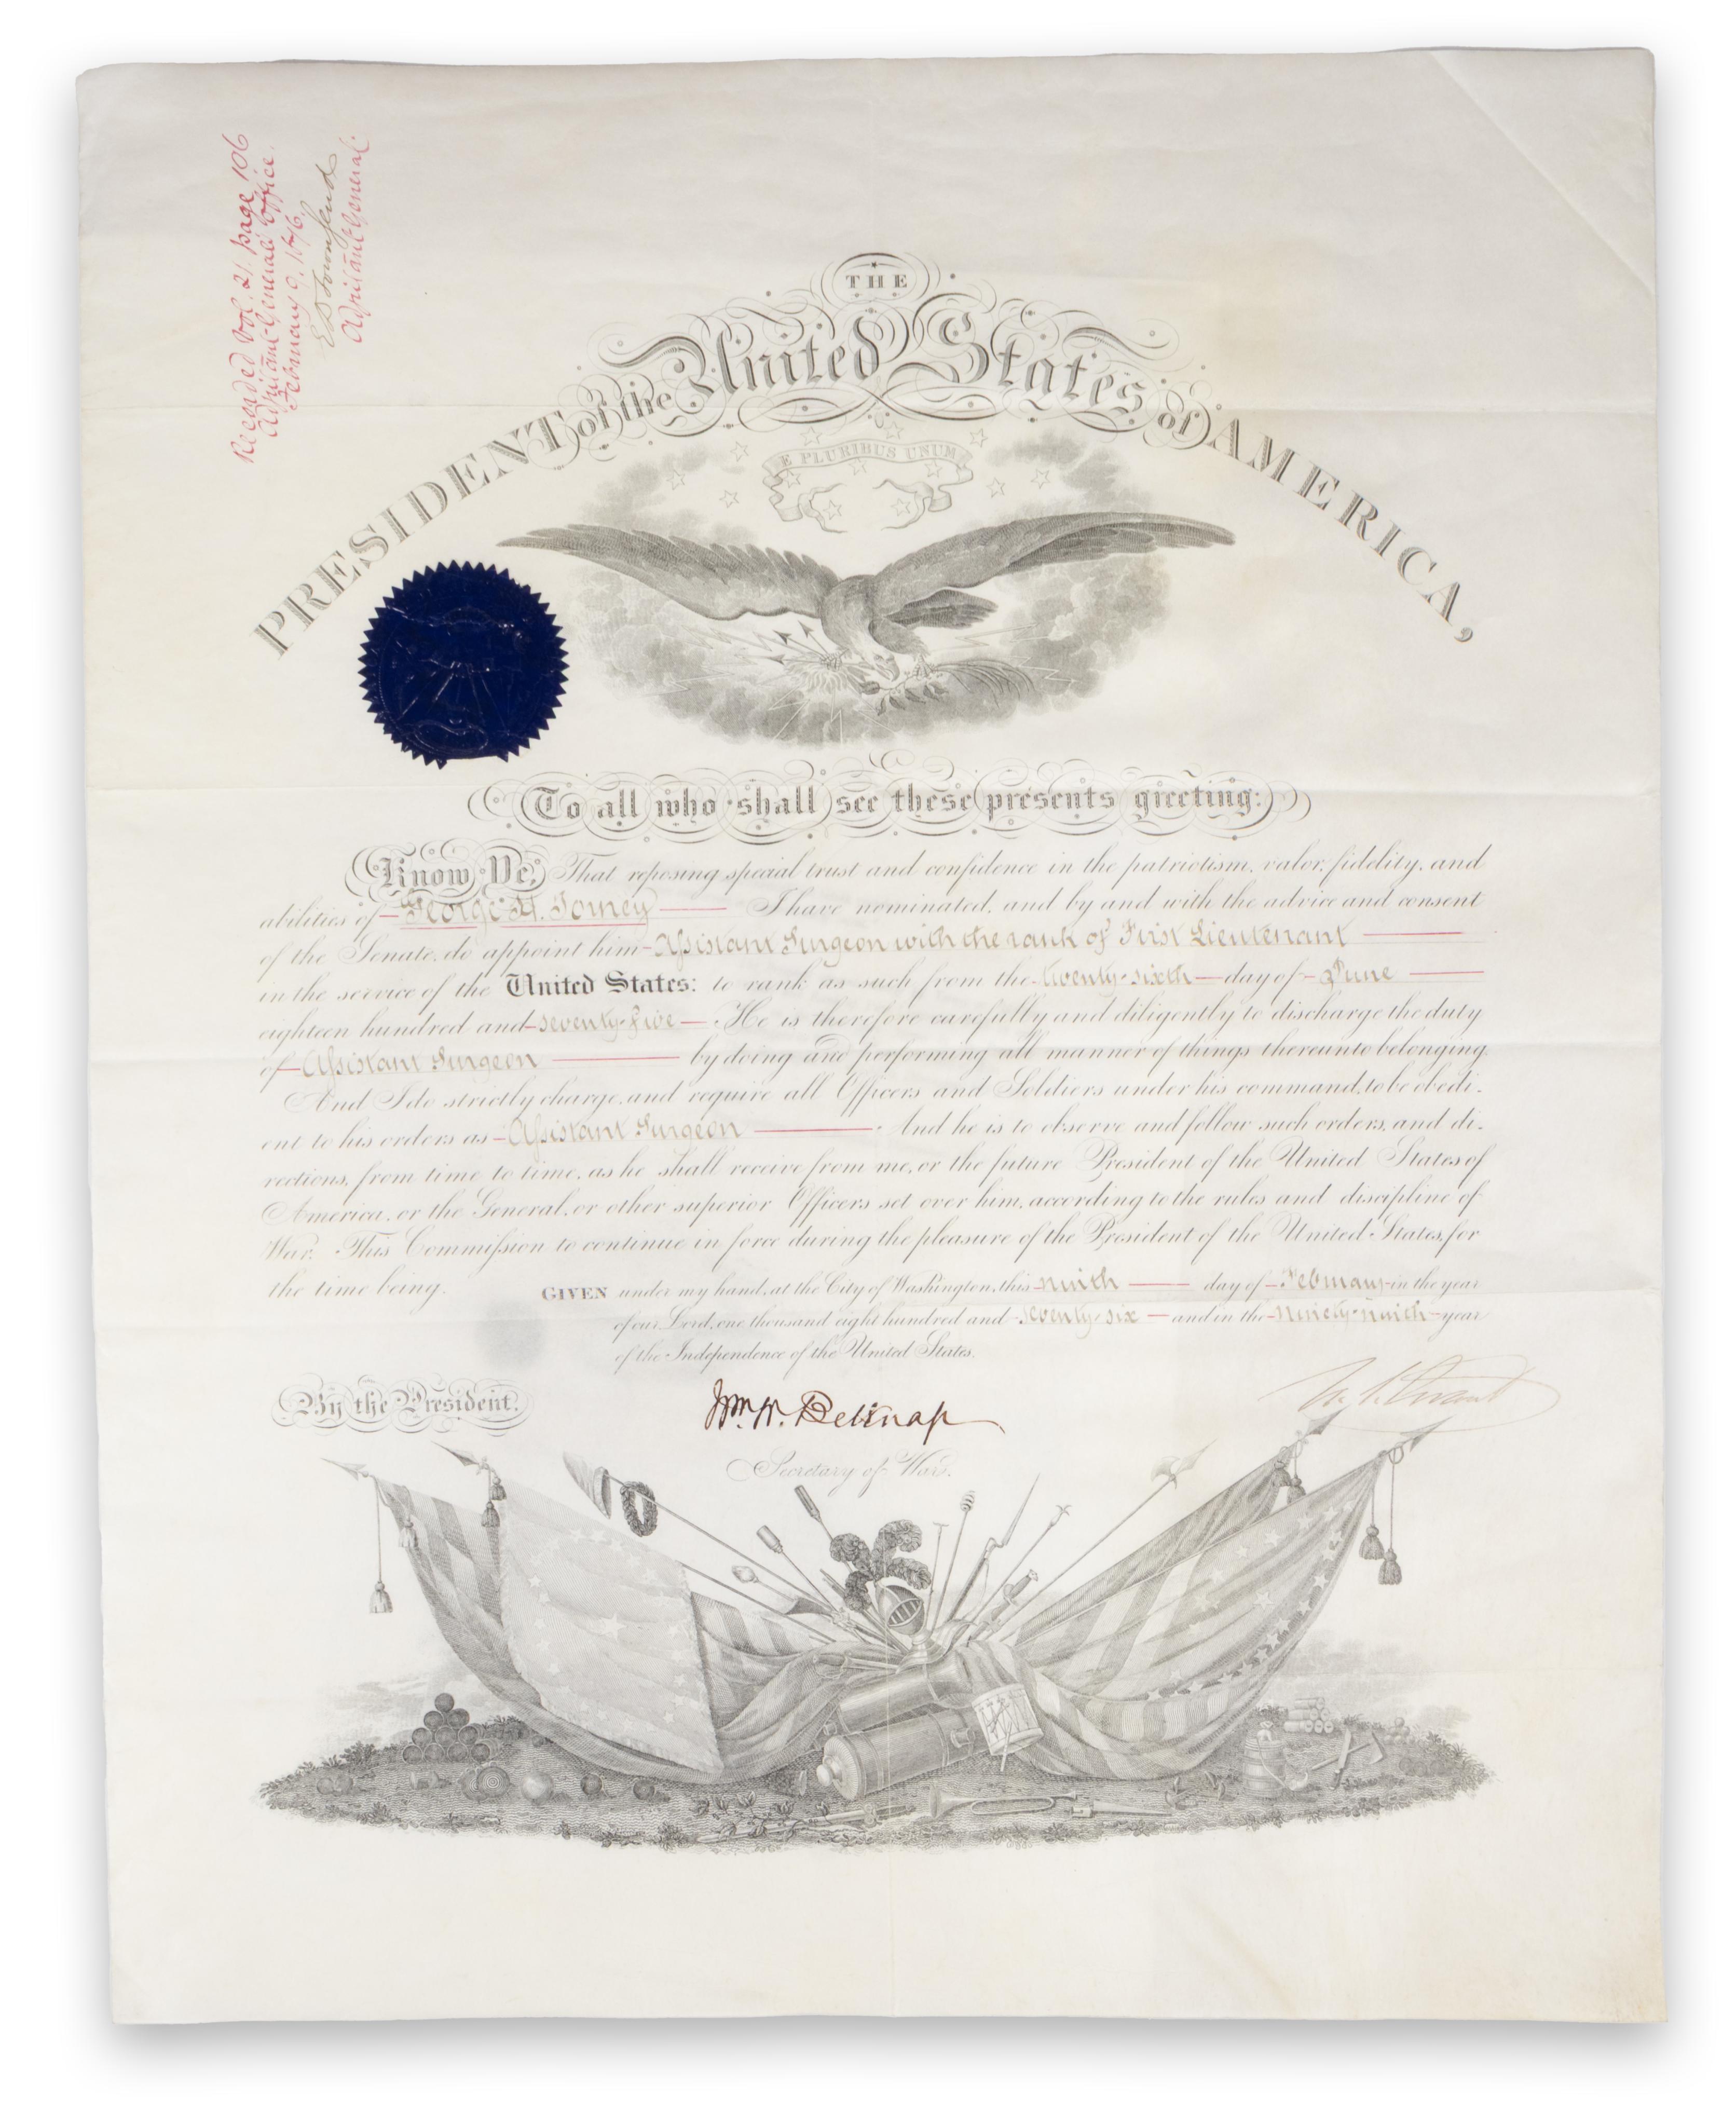 Recorded Vol. 21, page 106
Adjutant General's Office.
February 9. 1876.
E D Townsend
Adjutant General.
THE
PRESIDENT of the United States of AMERICA,
E PLURIBUS UNUM
To all who shall see these presents greeting:
Know Ye, That reposing special trust and confidence in the patriotism, valor, fidelity, and
abilities of George H. Torney I have nominated, and by and with the advice and consent
of the Senate, do appoint him Assistant Surgeon with the rank of First Lieutenant
in the service of the United States: to rank as such from the twenty-sixth day of June
eighteen hundred and seventy-five. He is therefore carefully and diligently to discharge the duty
of Assistant Surgeon by doing and performing all manner of things thereunto belonging.
And I do strictly charge, and require all Officers and Soldiers under his command, to be obedi-
ent to his orders as Assistant Surgeon. And he is to observe and follow such orders, and di-
rections, from time to time, as he shall receive from me, or the future President of the United States of
America, or the General, or other superior Officers set over him, according to the rules and discipline of
War. This Commission to continue in force during the pleasure of the President of the United States, for
the time being. GIVEN under my hand, at the City of Washington, this ninth day of February in the year
of our Lord, one thousand eight hundred and seventy-six and in the ninety-ninth year
of the Independence of the United States.
By the President. Wm. W. Belknap U. S. Grant
Secretary of War.